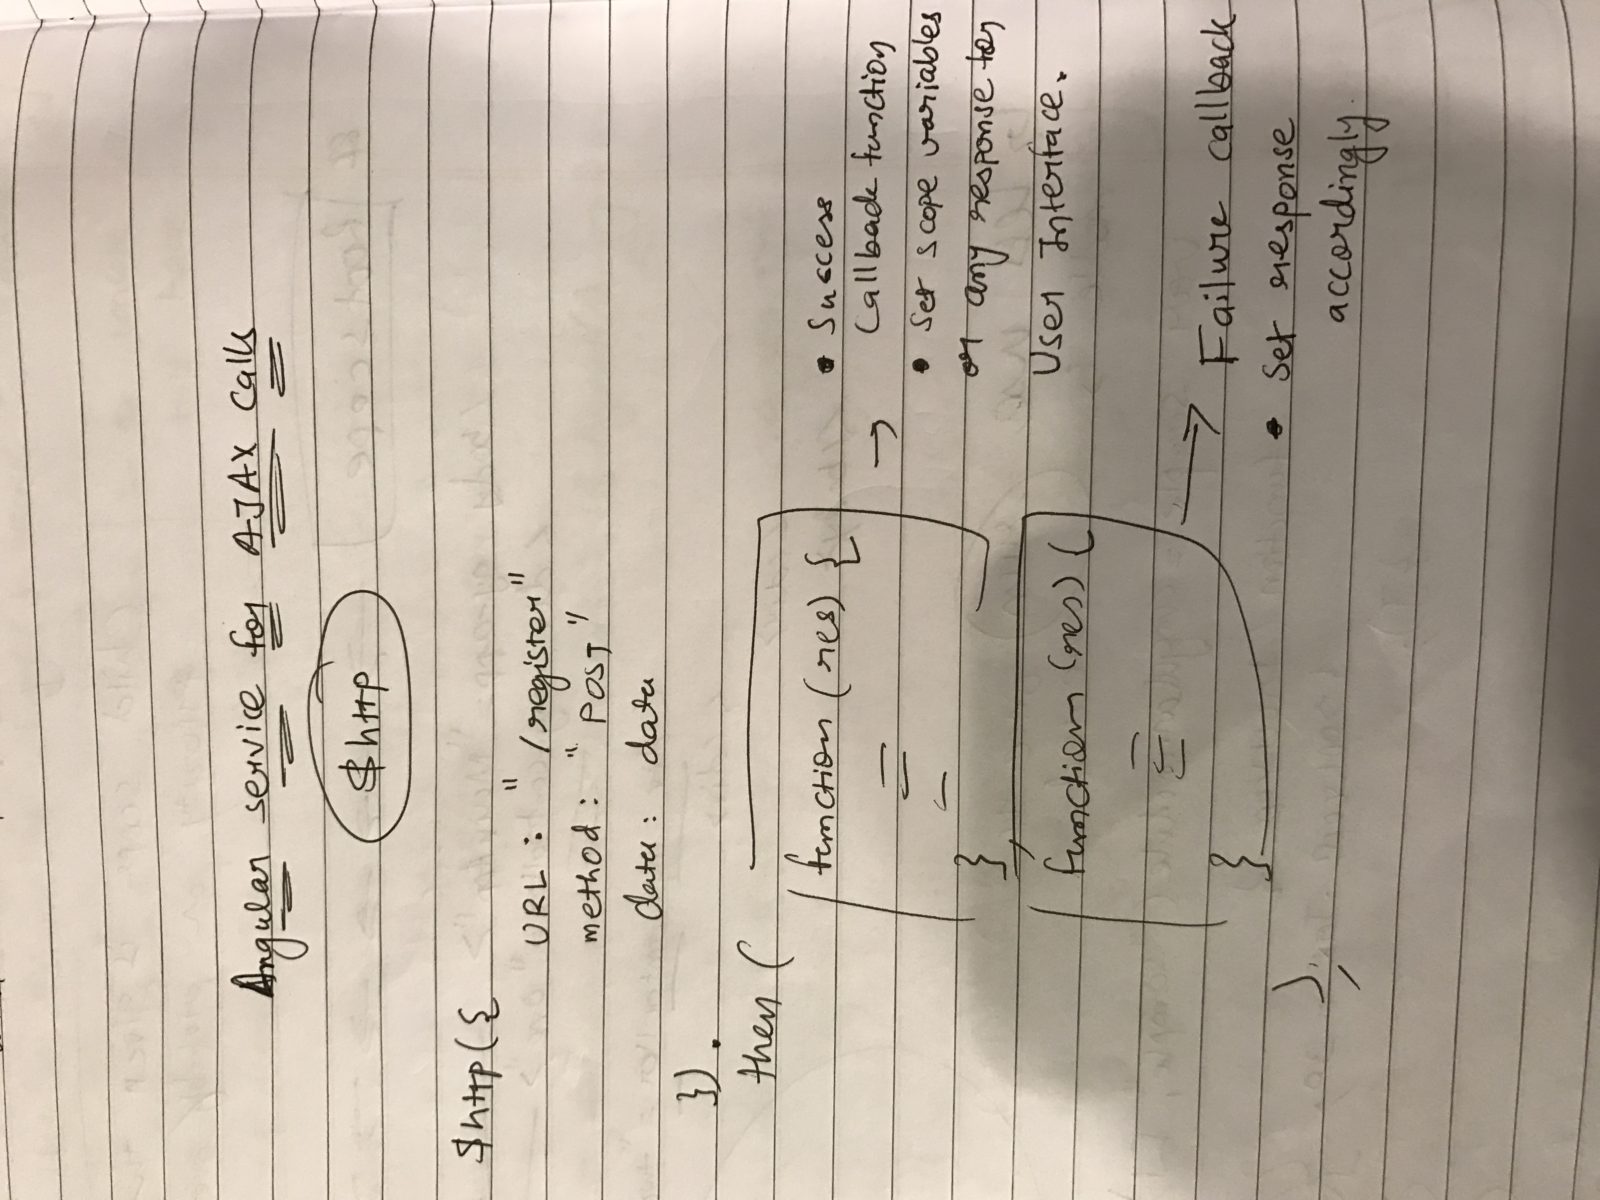 Angular service for AJAX calls
$http
$http({
URL : "/register"
method : "POST"
data : data
}).
then (
function (res) {
}
,
function (res) {
}
);
• Success
Callback function
• Set scope variables
or any response for
User Interface.
Failure callback
• Set response
accordingly.